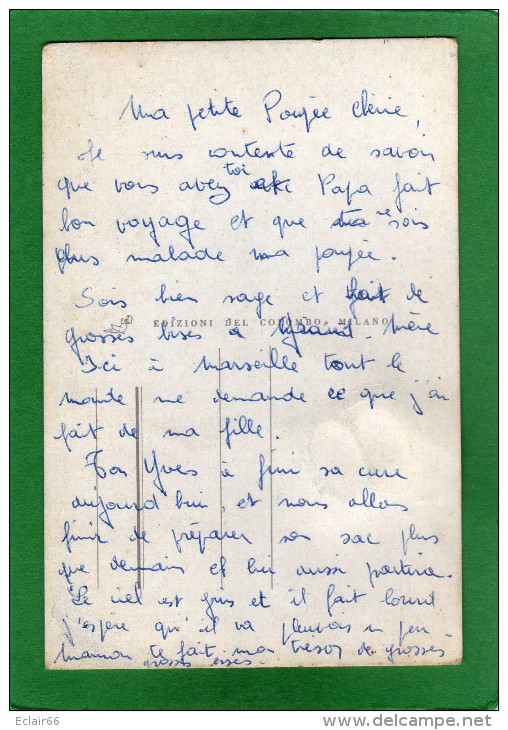 Ma petite Poupée chérie,
Je suis contente de savoir
que vous avez toi et Papa fait
bon voyage et que tu ne sois
plus malade ma poupée.
Sois bien sage et fait de
EDIZIONI DEL COLOMBO, MILANO
grosses bises à Grand-Mère
Ici à Marseille tout le
monde me demande ce que j'ai
fait de ma fille.
Ton Yves à fini sa cure
aujourd'hui, et nous allons
finir de préparer son sac plus
que demain et lui aussi partira.
Le ciel est gris et il fait lourd
j'espère qu'il va pleuvoir un peu
Maman te fait mon tresor de grosses
grosses bises.
Eclair66
www.delcampe.net